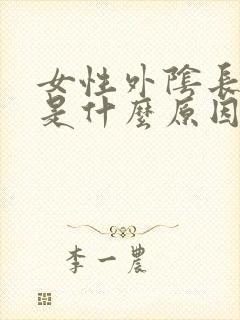 女性外陰長
是什麼原因
李一農